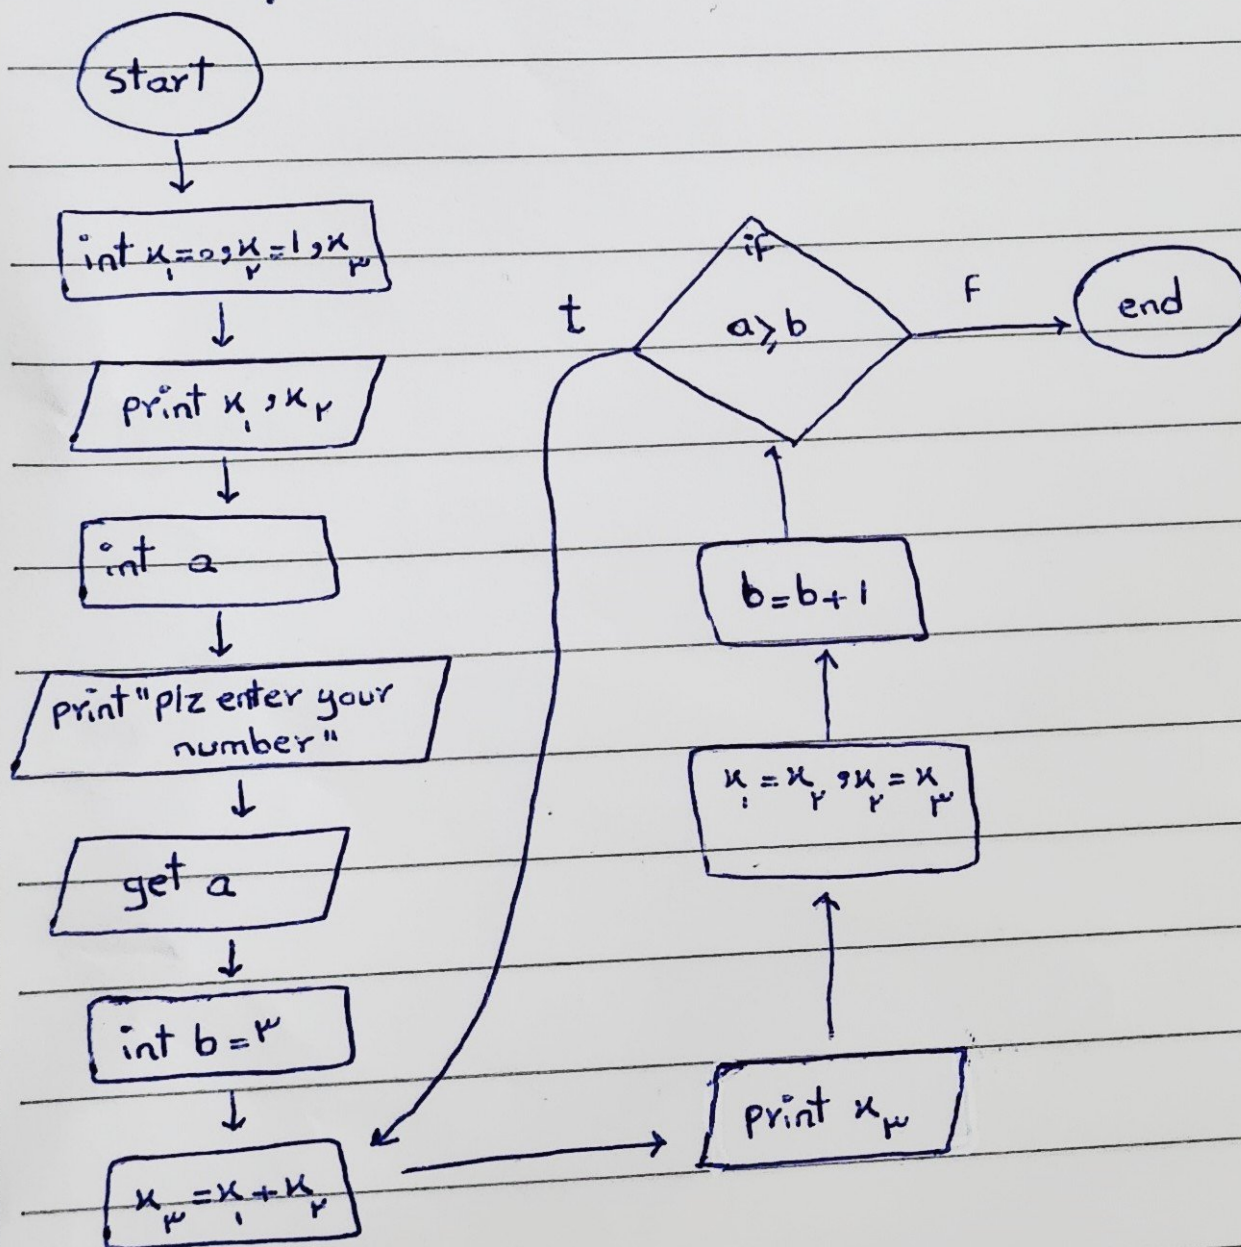 start
int x₁=0, x₂=1, x₃
print x₁, x₂
int a
print "plz enter your
number"
get a
int b=۳
x₃=x₁+x₂
print x₃
x₁=x₂, x₂=x₃
b=b+1
if
a≥b
t
F
end